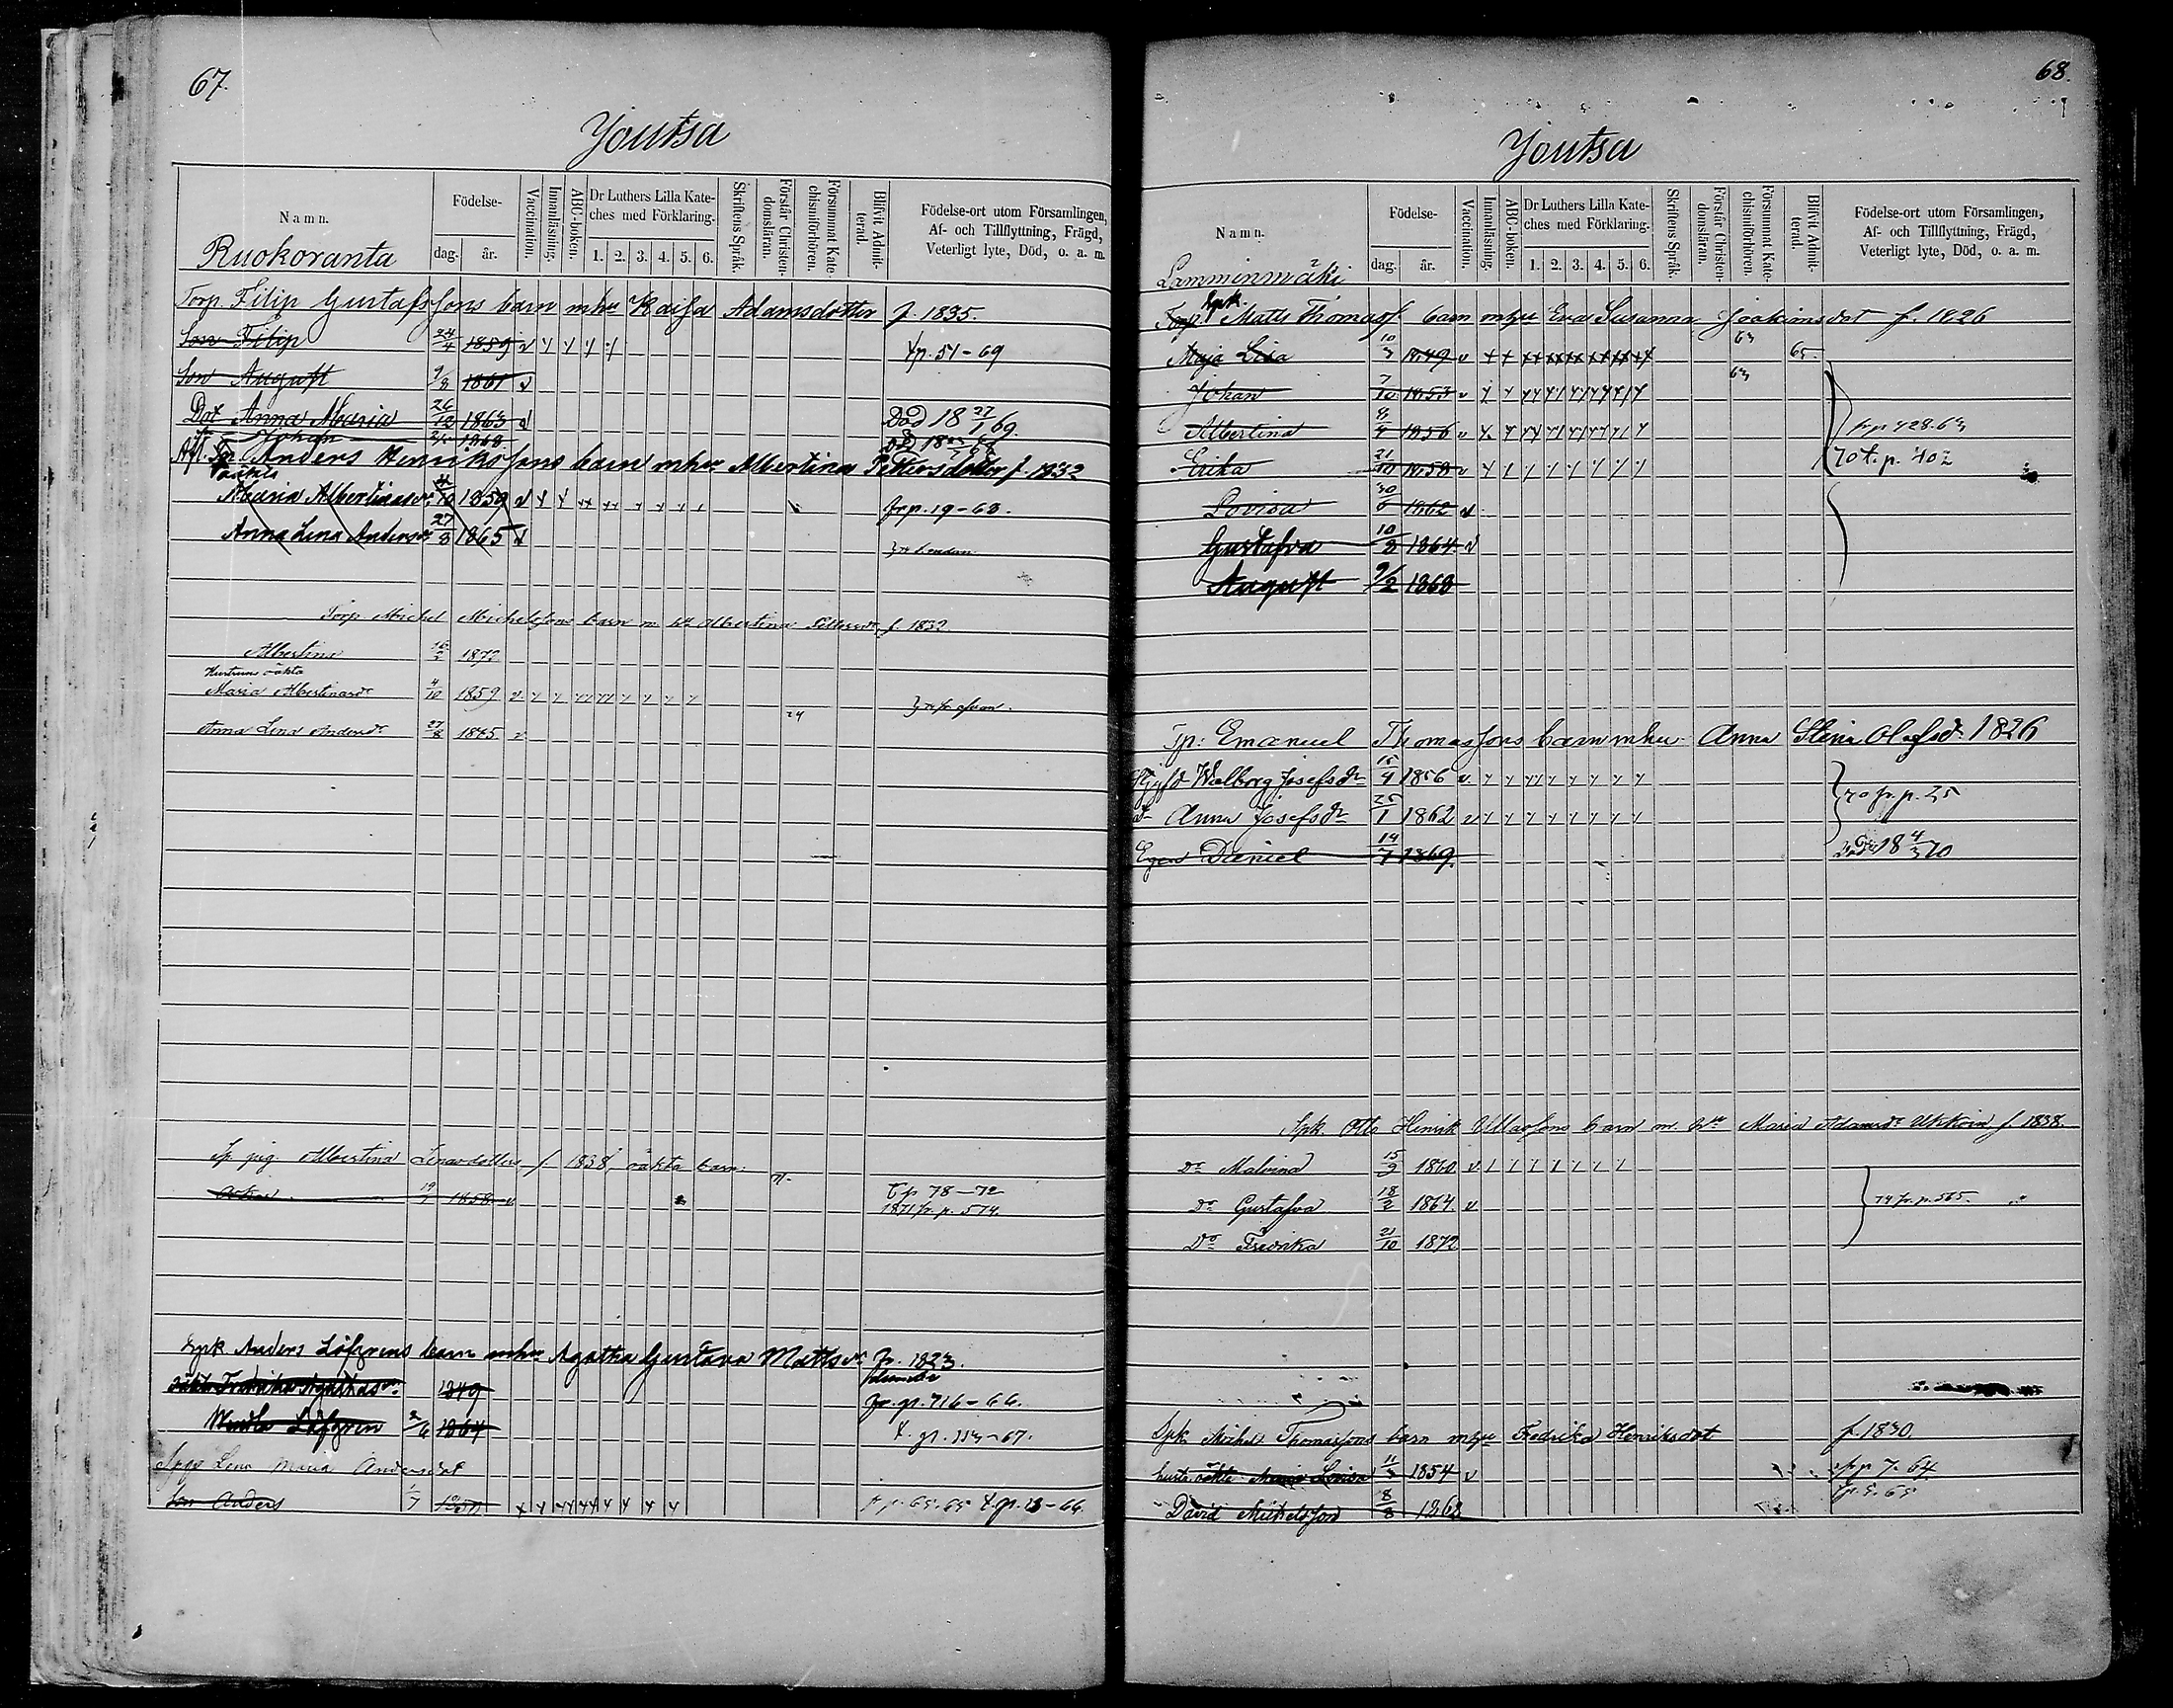 67.
Joutsa
Namn.
Födelse-
dag.
år.
Vaccination.
Innanläsning.
ABC-boken.
Dr Luthers Lilla Kate-
ches med Förklaring.
1. 2. 3. 4. 5. 6.
Skriftens Språk.
Förstår Christen-
domsläran.
Försummat Kate-
chismiförhören.
Blifvit Admit-
terad.
Födelse-ort utom Församlingen,
Af- och Tillflyttning, Frägd,
Veterligt lyte, Död, o. a. m.
Ruokoranta
Torp. Filip Gustafssons barn mhu Kaisa Adamsdotter f. 1835.
Son Filip 24/4 1859 v p. 51-69
Son August 9/8 1861 v
Dot Anna Maria 26/12 1863 v Död 18 27/1 69.
Johan 1868
Anders Henrikssons barn mhu Albertina Pettersdotter f. 1832
oäkta
Maria Albertinasdr 4/10 1859 v fr p. 19-68.
Anna Lena Andersdr 27/8 1865 v
Torp Michel Michelssons barn m. hu Albertina Pettersdr f. 1832
Albertina 1872
Hustruns oäkta
Maria Albertinasdr 4/10 1859 v
24
Anna Lena Andersdr 27/8 1865. v
Sp. pig. Albertina Lenasdotters f. 1838, oäkta barn:
19/1 1858 v t. p 78-72
1871 fr. p. 574.
Spk. Anders Löfgrens barn mhu Agatha Gustava Mattsdr f. 1823.
oäkta Fredrika Agathasdr 1849
fr. p. 716-66.
Wendla Löfgren 2/6 1864 t. p. 113-67.
Lena Maria Andersdot
Son Anders 1/7 p. 65-65 t. p. 13-66.
68.
Joutsa
Namn.
Födelse-
dag.
år.
Vaccination.
Innanläsning.
ABC-boken.
Dr Luthers Lilla Kate-
ches med Förklaring.
1. 2. 3. 4. 5. 6.
Skriftens Språk.
Förstår Christen-
domsläran.
Försummat Kate-
chismiförhören.
Blifvit Admit-
terad.
Födelse-ort utom Församlingen,
Af- och Tillflyttning, Frägd,
Veterligt lyte, Död, o. a. m.
Lamminmäki
Spk.
Torp. Matts Thomass. barn mhu Eva Susanna Joakimsdot f. 1826
Maja Lisa 10/3 1849 v 63 65
Johan 7/10 1853 v 63
Albertina 1856 v fr p 428.63
Erika 21/10 1858 v 70 t. p. 402
Lovisa 30/6 1862 v
Gustafva 10/8 1864 v
August 9/2 1868
Tp: Emanuel Thomassons barn mhu Anna Stina Olofsdr 1826
Styfd Walborg Josefsdr 15/4 1856 v 70 fr. p. 25
dr Anna Josefsdr 25/1 1862 v
Egen Daniel 14/7 1869. Död 18 4/3 70
Spk. Otto Henrik Ullassons barn m. hu Maria Adamsdr Ukkoin f. 1838.
Dr Malvina 15/9 1860 v
Dr Gustafva 18/2 1864. v 74 fr. p. 565.
Dr Fredrika 21/10 1872
Spk. Michel Thomassons barn mhu Fredrika Henriksdot f. 1830
hustr. oäkta Maria Lovisa 11/3 1854 v fr p 7-64
David Michelsson 8/8 1868